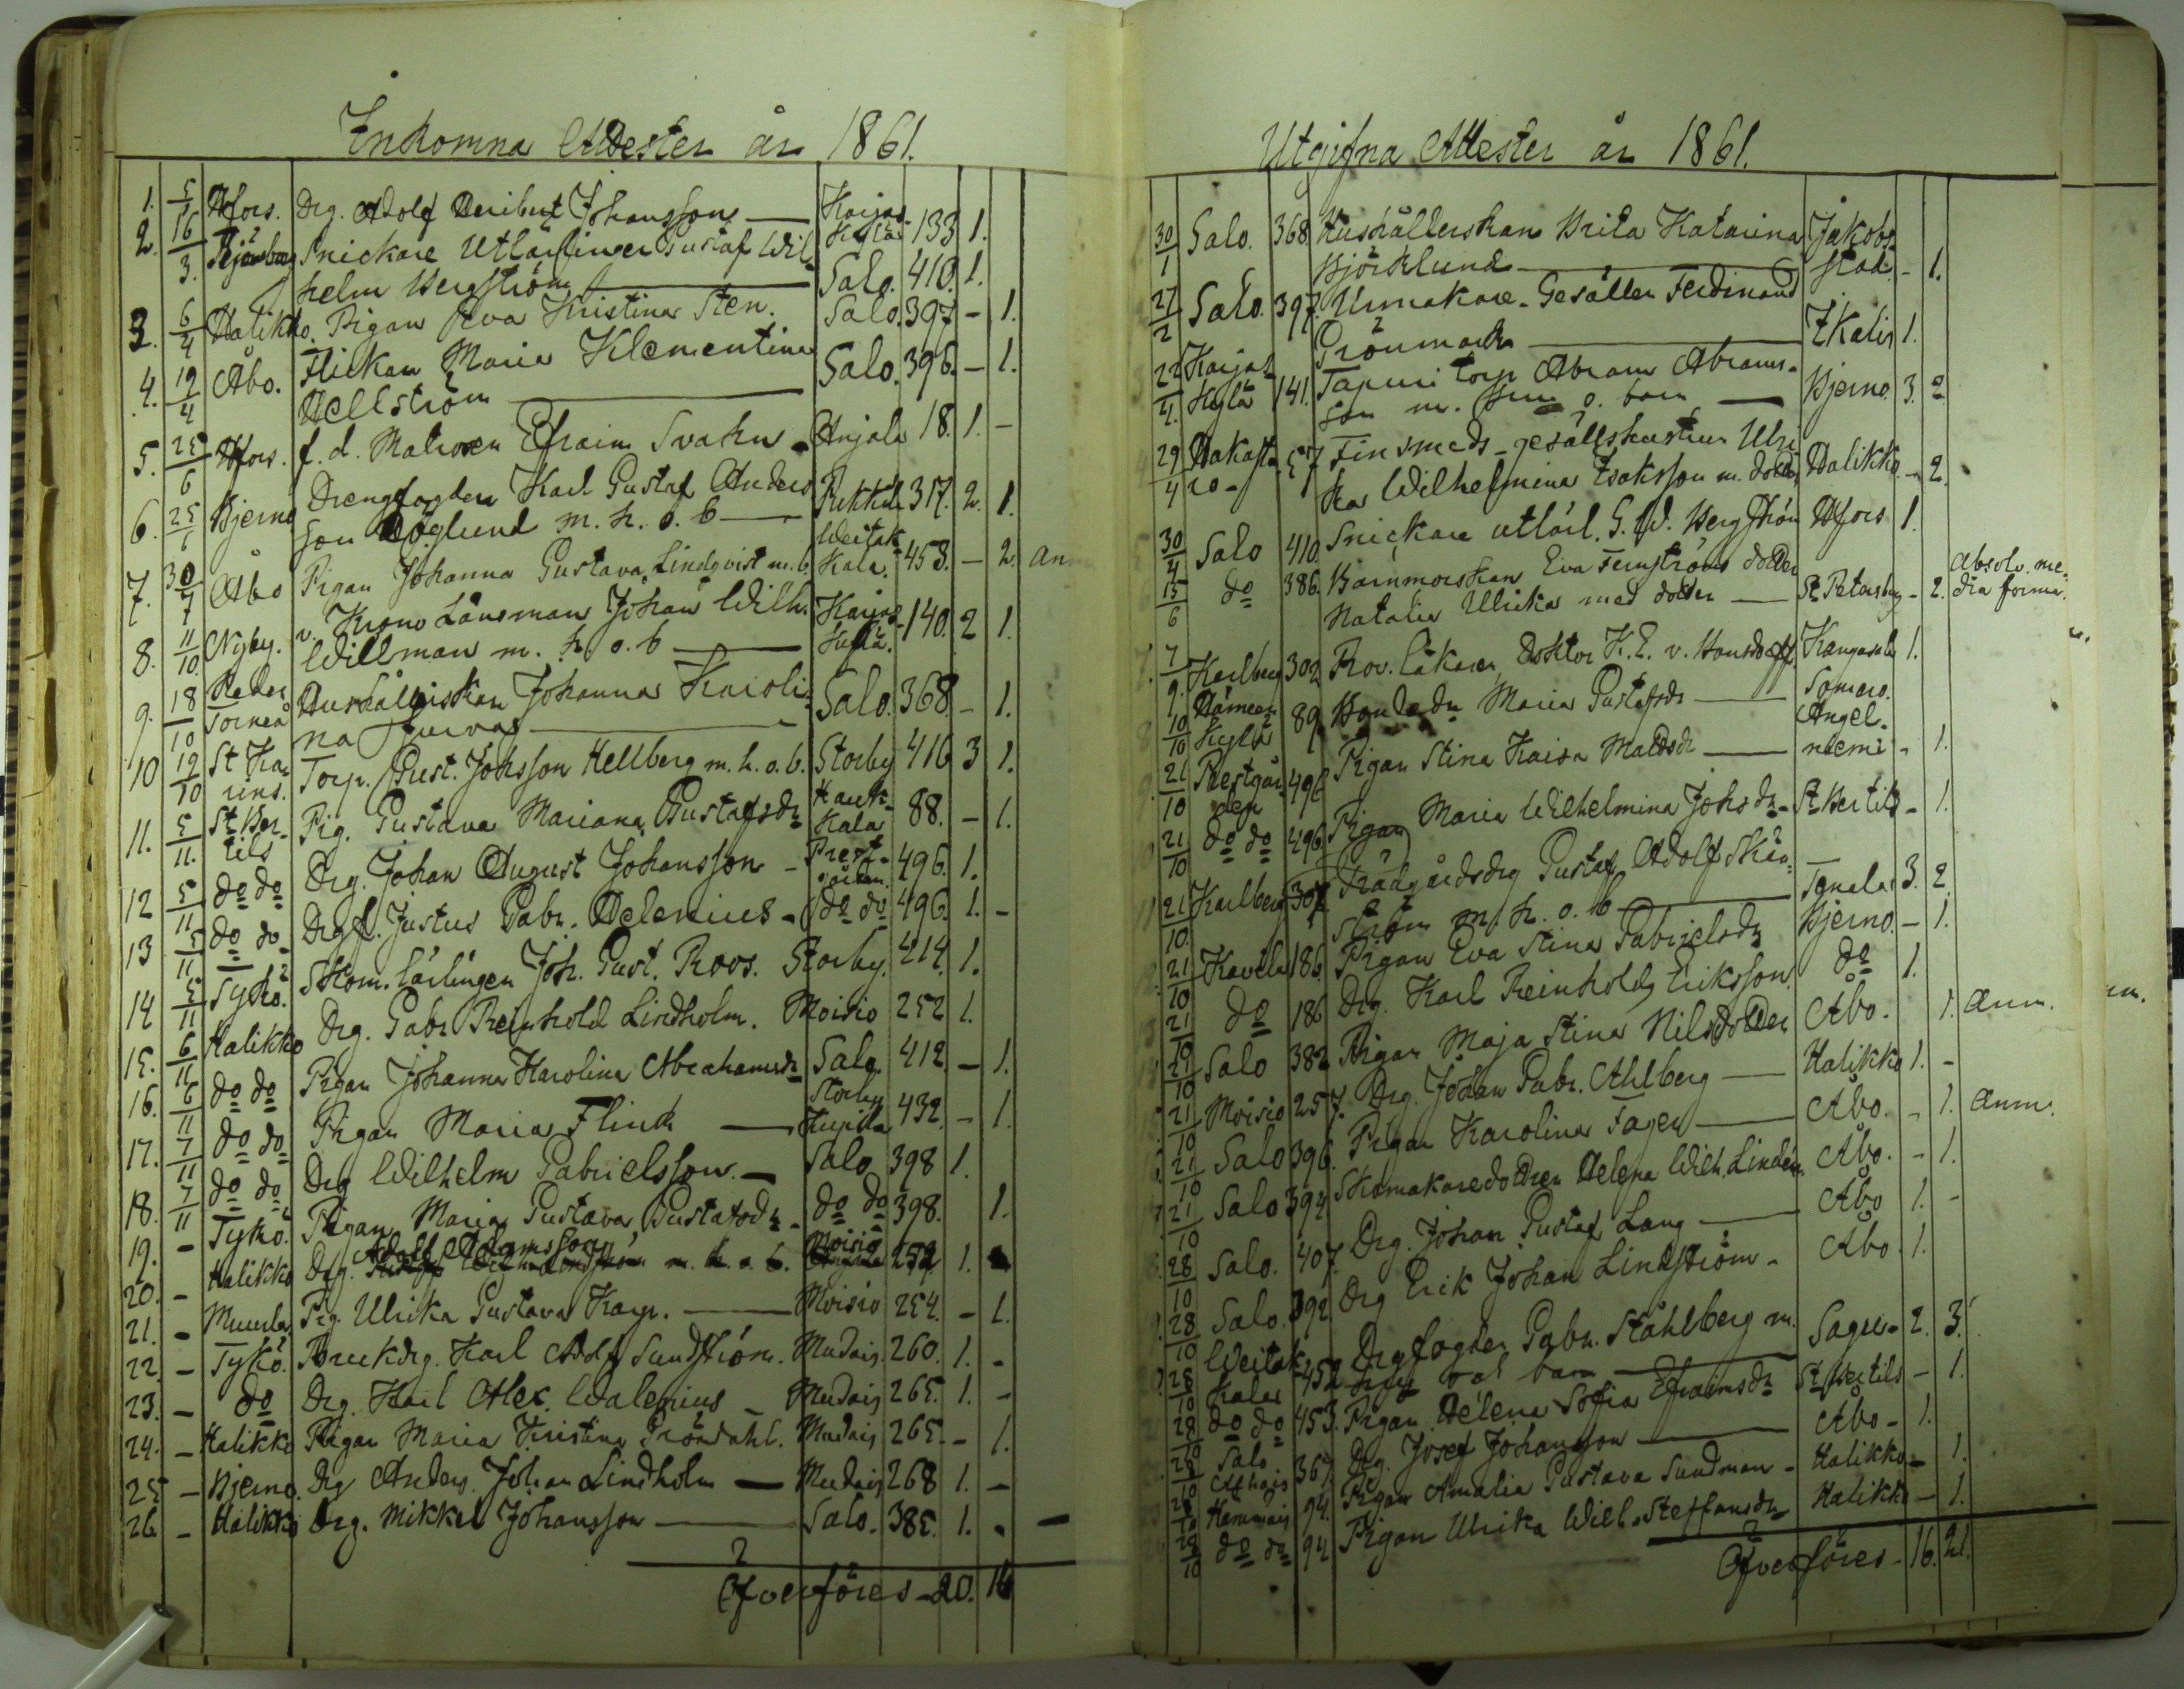 Inkomna Attester år 1861.
1. 5/1 Hfors. Drg. Adolf Heribert Johansson — Karjas- 133 1.
kylä
2. 16/3. Björneborg Snickare Utlärlingen Gustaf Wil-
helm Bergström — Salo. 410. 1.
3. 6/4 Halikko. Pigan Eva Kristina Sten. Salo. 397 - 1.
4. 19/4 Åbo. Flickan Maria Klementina
Hellström — Salo. 396. - 1.
5. 25/6 Hfors. f. d. Matrosen Efraim Svahn - Anjala 18. 1. -
6. 25/6 Bjerno Drengfogden Karl Gustaf Anders
son Höglund m. h. o. b — Pukkila 317. 2. 1.
7. 30/7 Åbo Pigan Johanna Gustava Lindqvist m. b. Weitak-
kala. 458. - 2. an
8. 11/10. Nyby. v. Krono Länsman Johan Wilh.
Willman m. h. o. b — Karjas-
kylä. 140. 2 1.
9. 18/10 Neder
Torneå Hushålliskan Johanna Karoli-
na — Salo. 368. - 1.
10 19/10 St Ka-
rins. Torp. Gust. Johsson Hellberg m. h. o. b. Storby 416 3 1.
11. 5/11. St Ber-
tils Pig. Gustava Mariana Gustafsdr Kauk-
kala 88. - 1.
12 5/11 do do Drg. Johan August Johansson - Prest-
gården. 496. 1.
13 5/11 do do - Drgf. Justus Gabr. Helenius - do do 496. 1. -
14 5/11 Tykö. Skom. lärlingen Joh. Gust. Roos. Storby. 414. 1.
15. 6/11 Halikko Drg. Gabr Reinhold Lindholm. Moisio 252 1.
16. 6/11 do do Pigan Johanna Karolina Abrahamsdr Salo. 412. - 1.
17. 7/11 do do Pigan Maria Flink — Storby
Kujila 432. - 1.
18. 7/11 do do Drg Wilhelm Gabrielsson. — Salo 398 1.
19. - Tykö. Pigan Maria Gustava Gustafsdr - do do 398. 1.
20. - Halikko Drg. Adolf Adamsson m. h. o. b. Moisio 252 1.
21. - Muurla Pig. Ulrika Gustava Karp. — Moisio 254. - 1.
22. - Tykö. Bruksdrg. Karl Adolf Sundström. Mudais. 260. 1. -
23. - do Drg. Karl Alex. Walenius - Mudais 265. 1. -
24. - Halikko Pigan Maria Kristina Gröndahl. Mudais 265. - 1.
25 - Bjerno. Drg Anders Johan Lindholm — Mudais 268 1. -
26. - Halikko Drg. Mikkel Johansson — Salo. 385. 1. -
Öfverföres - 20. 16
Utgifna Attester år 1861.
30/1 Salo. 368 Hushållerskan Brita Katarina Jakobs-
Björklund — stad - 1.
27/2 Salo. 397. Urmakare-Gesällen Ferdinand
Grönmark — Ikalis 1.
22/4. Karjas-
kylä 141. Tapuri torp Abram Abrams-
son m. hru o. barn — Bjerno. 3. 2
29/4 Hakasta-
ro - 57 Finsmeds-gesällshustrun Ulri-
ka Wilhelmina Isaksson m. dotter Halikko - 2.
30/4 Salo 410. Snickare utlärl. G. W. Bergström Hfors 1.
15/6 do 386. Barnmorskan Eva Fernströms dotter
Natalia Ulrika med dotter — St Petersburg - 2. Absolv. me-
dia forma.
7/9. Karlberg 302 Prov. läkaren Doktor K. E. v. Bonsdorff Kangasala 1.
10/10 Hämeen
kylä 89. Bondedr Maria Gustafsdr — Somero.
21/10 Prestgår-
den 496 Pigan Stina Kaisa Mattsdr — Angel-
niemi - 1.
21/10 do do 496. Pigan Maria Wilhelmina Johsdr - St Bertils - 1.
21/10. Karlberg 307. Trädgårdsdrg Gustaf Adolf Skön-
ström m. h. o. b — Tenala 3. 2.
21/10 Kavila 186. Pigan Eva Stina Gabrielsdr Bjerno. - 1.
21/10 do 186 Drg. Karl Reinhold Eriksson do 1.
21/10 Salo 382 Pigan Maja Stina Nilsdotter Åbo. 1. Anm.
21/10 Moisio 257. Drg. Johan Gabr. Ahlberg — Halikko 1. -
21/10 Salo 396. Pigan Karolina Fager — Åbo. - 1. Anm.
21/10 Salo 394. Skomakaredottren Helena Wilh. Lindén. Åbo. - 1.
28/10 Salo. 407. Drg. Johan Gustaf Lang — Åbo 1. -
28/10 Salo. 392. Drg Erik Johan Lindström - Åbo 1.
28/10 Weitak-
kala 452 Drgfogden Gabr. Ståhlberg m.
hru och barn — Sagu - 2. 3.
28/10 do do 453. Pigan Helena Sofia Efraimsdr St Bertils - 1.
28/10 Salo 367. Drg. Josef Johansson — Åbo - 1.
28/10 94. Pigan Amalia Gustava Sundman - Halikko - 1.
28/10 do do 94 Pigan Ulrika Wilh. Steffansdr Halikko - 1.
Öfverföres - 16. 21.